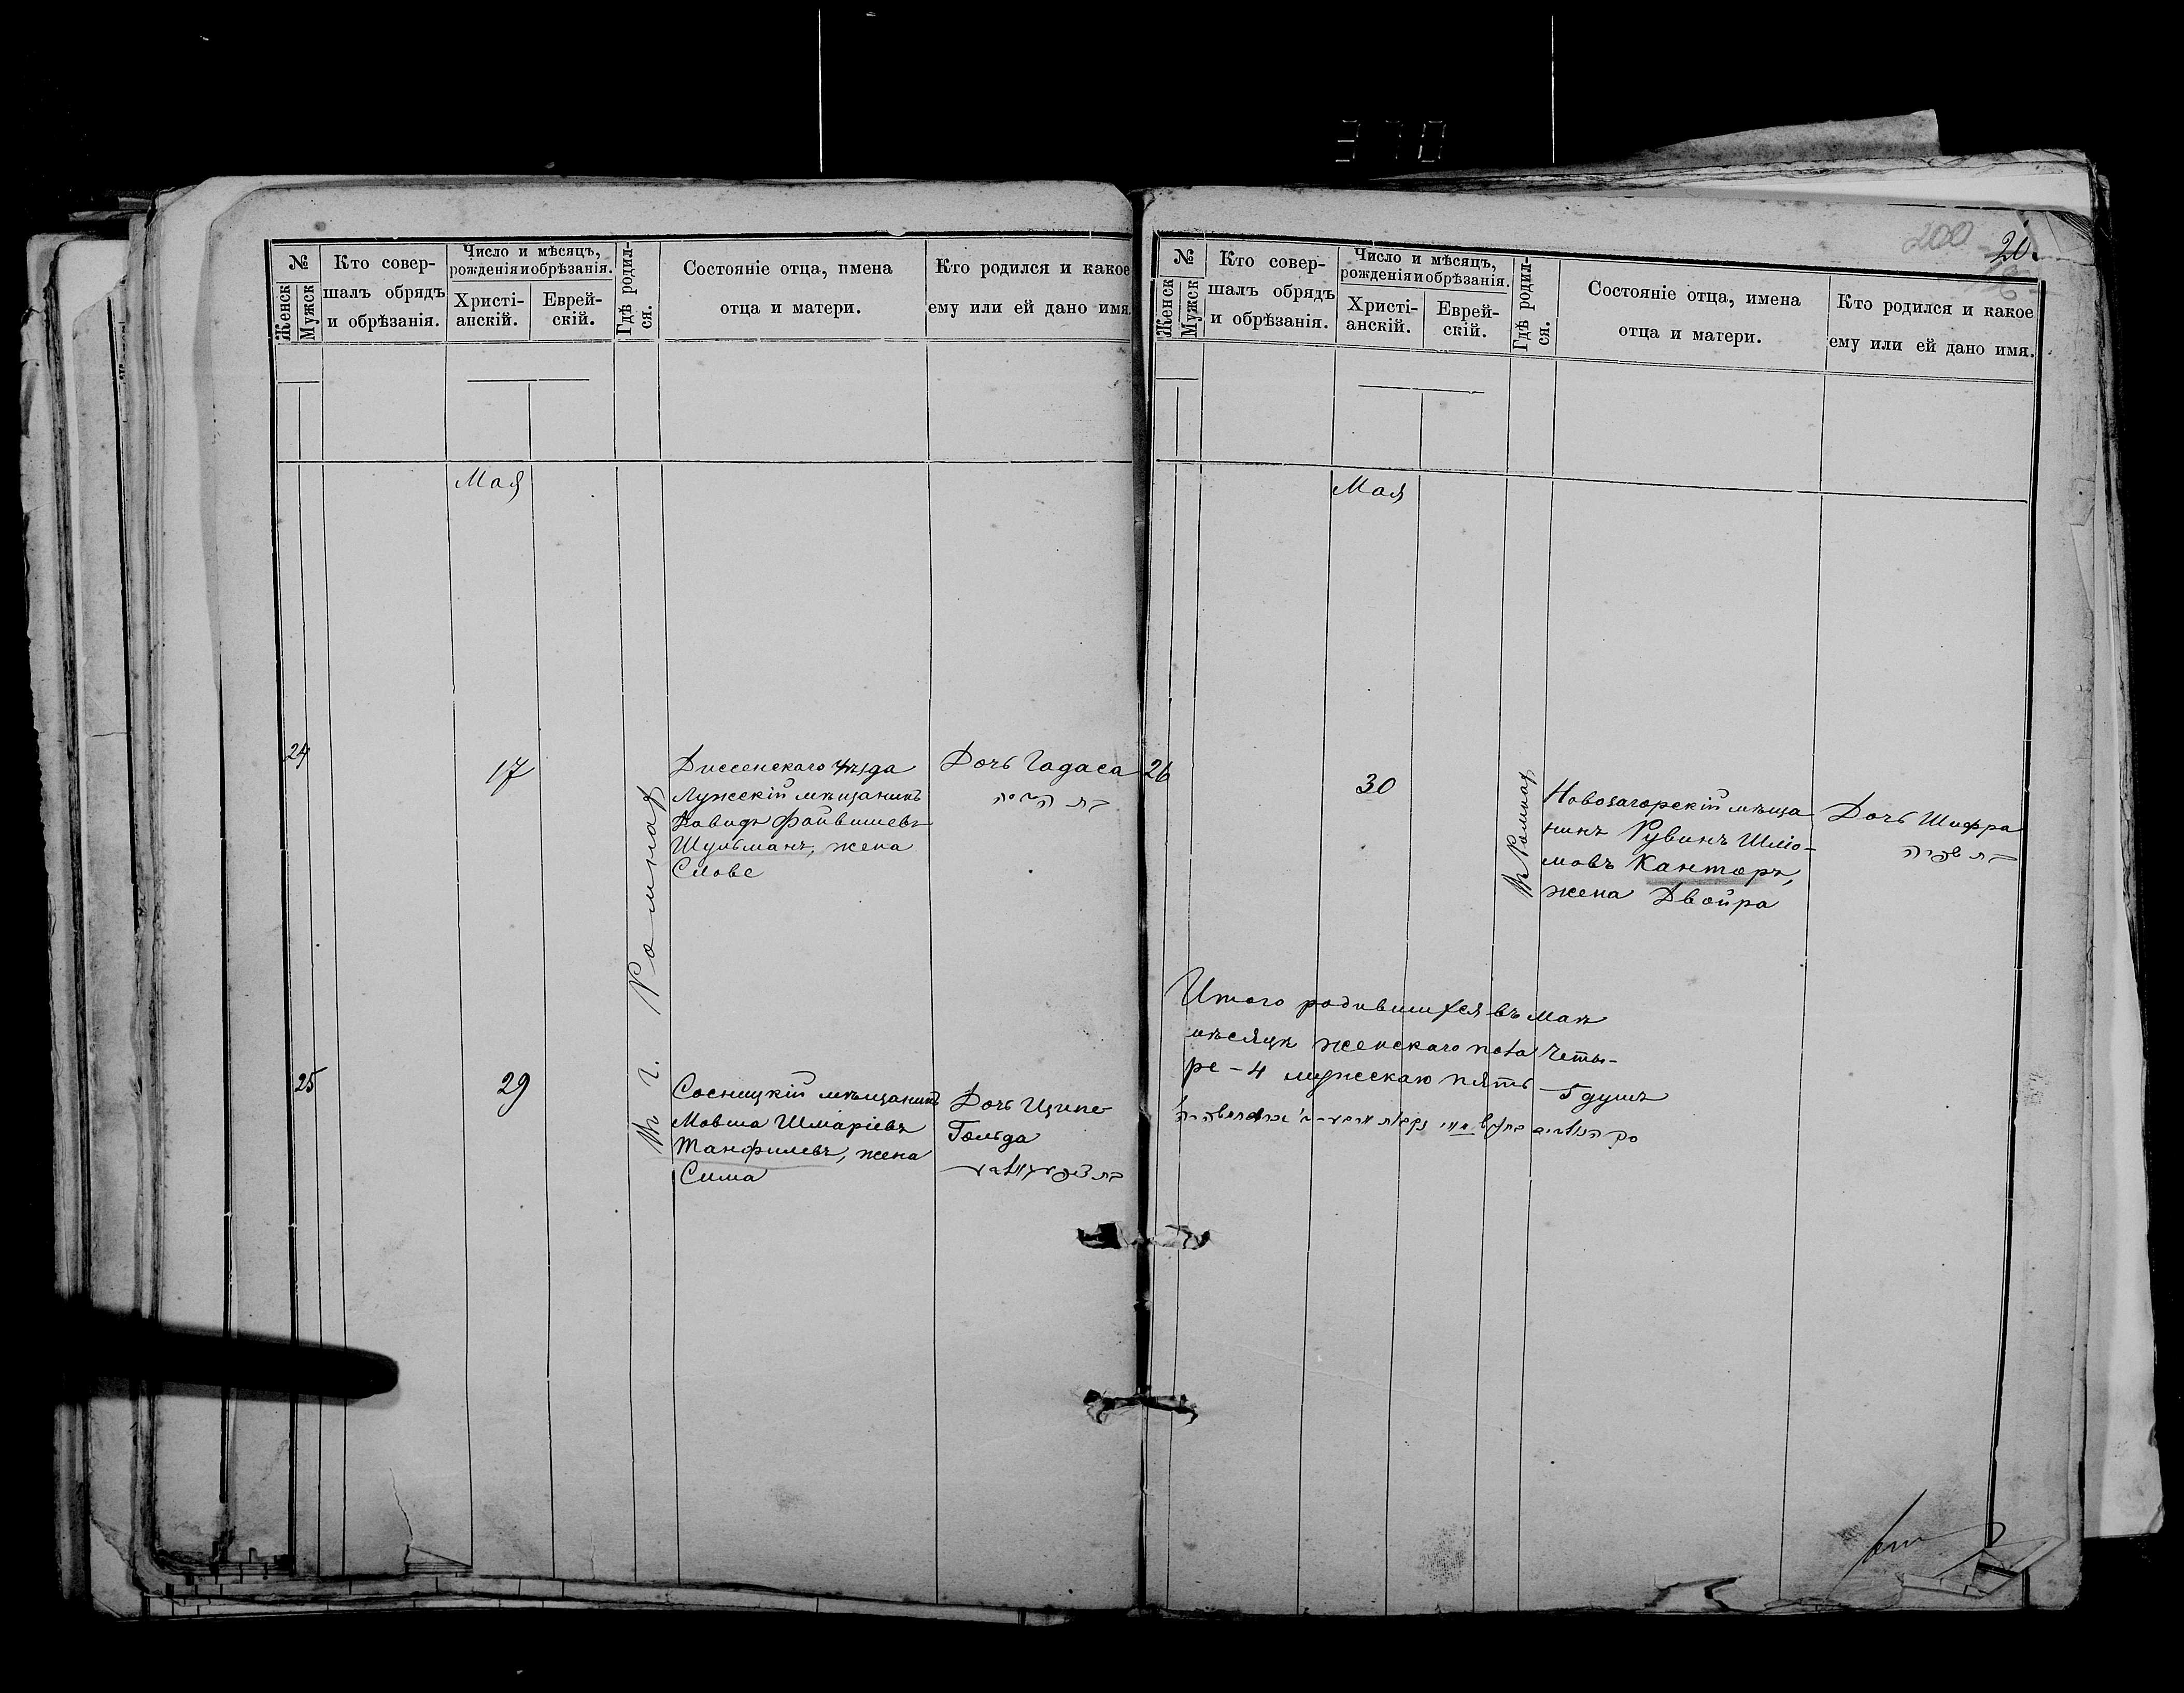 370
№
Женск
Мужск
Кто совер-
шалъ обрядъ
и обрѣзанія.
Число и мѣсяцъ,
рожденія и обрѣзанія.
Христі-
анскій.
Еврей-
скій.
Гдѣ родил-
ся.
Состояніе отца, имена
отца и матери.
Кто родился и какое
ему или ей дано имя.
Мая
24
17
Диссенскаго уѣзда
Лужескій мѣщанинъ
Давидъ Файвишевъ
Шульманъ, жена
Слове
Дочь Гадаса
Въ г. Ромнах
25
29
Сосницкій мѣщанинъ
Мовша Шмаріевъ
Танфилевъ, жена
Сима
Дочь Ципе
Гольда
200
20.
№
Женск
Мужск
Кто совер-
шалъ обрядъ
и обрѣзанія.
Число и мѣсяцъ,
рожденія и обрѣзанія.
Христі-
анскій.
Еврей-
скій.
Гдѣ родил-
ся.
Состояніе отца, имена
отца и матери.
Кто родился и какое
ему или ей дано имя.
Мая
26
30
Въ Ромнах
Новозагорскій мѣща
нинъ Рувинъ Шліо-
мовъ Канторъ,
жена Двойра
Дочь Шифра
Итого родившихся въ маѣ
мѣсяцѣ женскаго пола четы-
ре - 4 мужскаго пять - 5 душъ